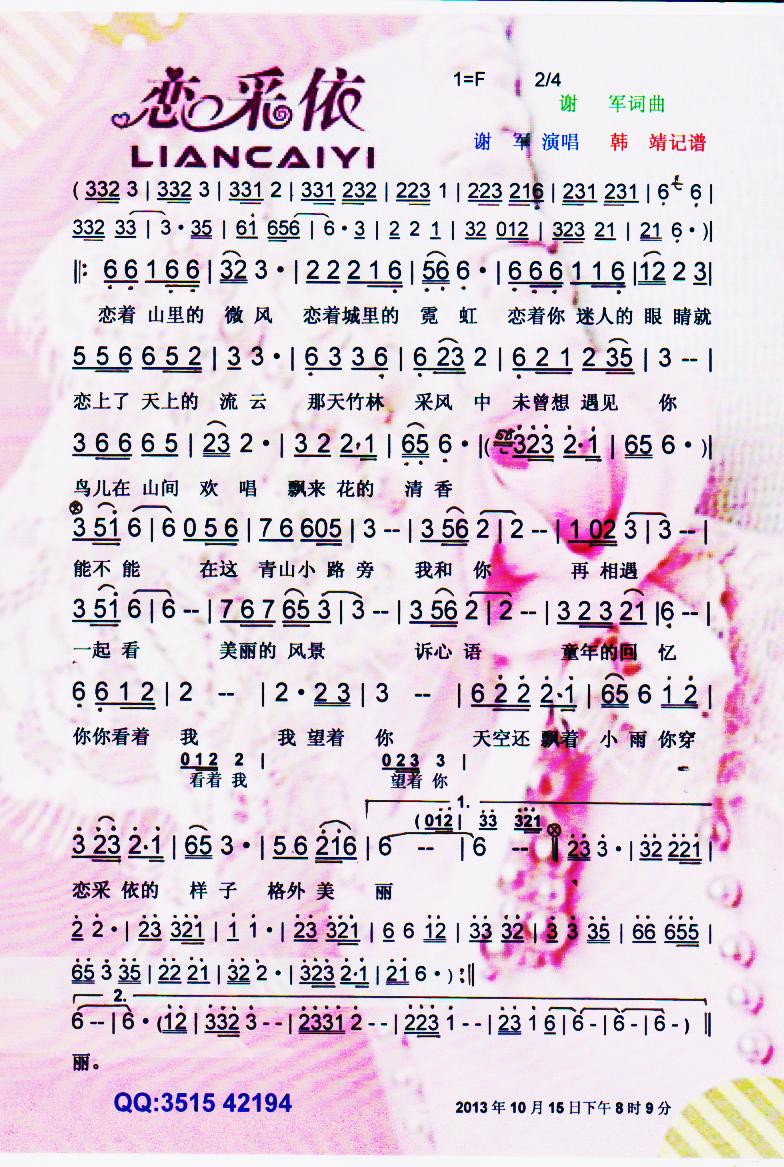 恋采依
LIANCAIYI
1=F 2/4
谢 军词曲
谢 军 演唱 韩 靖记谱
( 332 3 | 332 3 | 331 2 | 331 232 | 223 1 | 223 216 | 231 231 | 6 6 |
332 33 | 3 · 35 | 61 656 | 6 · 3 | 2 2 1 | 32 012 | 323 21 | 21 6 · )|
‖: 6 6 1 6 6 | 32 3 · | 2 2 2 1 6 | 56 6 · | 6 6 6 1 1 6 | 12 2 3|
恋着 山里的 微 风 恋着城里的 霓 虹 恋着你 迷人的 眼 睛就
5 5 6 6 5 2 | 3 3 · | 6 3 3 6 | 6 23 2 | 6 2 1 2 35 | 3 -- |
恋上了 天上的 流 云 那天竹林 采风 中 未曾想 遇见 你
3 6 6 6 5 | 23 2 · | 3 2 2·1 | 65 6 · |( 323 2·1 | 65 6 · )|
鸟儿在 山间 欢 唱 飘来 花的 清 香
3 51 6 | 6 0 5 6 | 7 6 605 | 3 -- | 3 56 2 | 2 -- | 1 02 3 | 3 -- |
能不 能 在这 青山小 路 旁 我和 你 再 相遇
3 51 6 | 6 -- | 7 6 7 65 3 | 3 -- | 3 56 2 | 2 -- | 3 2 3 21 |6 -- |
一起 看 美丽的 风景 诉心 语 童年的回 忆
6 6 1 2 | 2 -- | 2 · 2 3 | 3 -- | 6 2 2 2·1 | 65 6 1 2 |
你你看着 我 我 望着 你 天空还 飘着 小 雨 你穿
0 1 2 2 | 0 2 3 3 |
看着 我 望着 你
1.
( 012 | 33 321
3 23 2·1 | 65 3 · | 5 6 216 | 6 -- | 6 -- ‖ 23 3 · | 32 221 |
恋采 依的 样 子 格外 美 丽
2 2 · | 23 321 | 1 1 · | 23 321 | 6 6 12 | 33 32 | 3 3 35 | 66 655 |
65 3 35 | 22 21 | 32 2 · | 323 2·1 | 21 6 · ) :‖
2.
6 -- | 6 · (12 | 332 3 -- | 2331 2 -- | 223 1 -- | 23 1 6 | 6 - | 6 - | 6 - ) ‖
丽。
QQ:3515 42194
2013 年 10 月 15 日下午 8 时 9 分